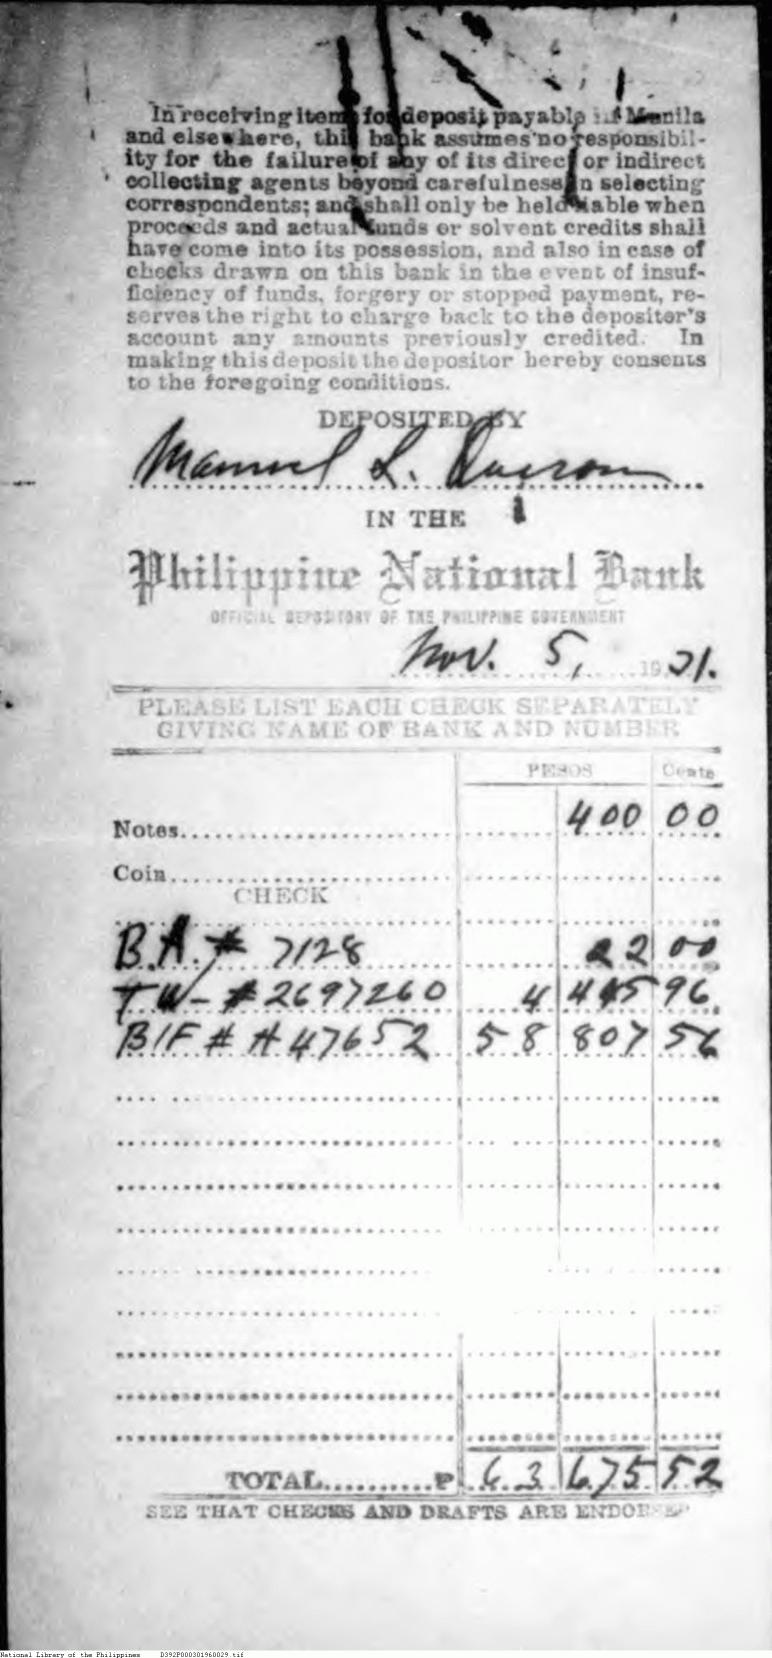 In receiving items for deposit payable in Manila
and elsewhere, this bank assumes no responsibil-
ity for the failure of any of its direct or indirect
collecting agents beyond carefulness in selecting
correspondents; and shall only be held liable when
proceeds and actual funds or solvent credits shall
have come into its possession, and also in case of
checks drawn on this bank in the event of insuf-
ficiency of funds, forgery or stopped payment, re-
serves the right to charge back to the depositor's
account any amounts previously credited. In
making this deposit the depositor hereby consents
to the foregoing conditions.
DEPOSITED BY
Manuel L. Quezon
IN THE
Philippine National Bank
OFFICIAL DEPOSITORY OF THE PHILIPPINE GOVERNMENT
Nov. 5, 1921.
PLEASE LIST EACH CHECK SEPARATELY
GIVING NAME OF BANK AND NUMBER
PESOS Cents
Notes 400 00
Coin
CHECK
B.A. # 7128 22 00
TW- # 2697260 4 445 96
B/F # # 47652 58 807 56
TOTAL P 63 675 52
SEE THAT CHECKS AND DRAFTS ARE ENDORSED
National Library of the Philippines D392P000301960029.tif